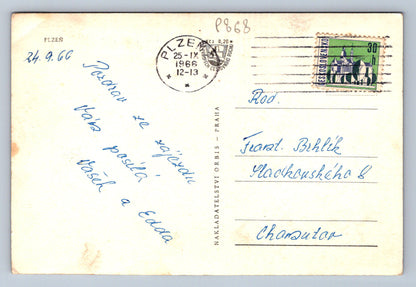 P868
PLZEŇ
24.9.66
PLZEŇ 1
25-IX
1966
12-13
ČESKOSLOVENSKO
30 h
Pozdrav ze zájezdu
Vám posílá
Vašek a Edda
NAKLADATELSTVÍ ORBIS - PRAHA
Rod.
Frant. Brhlík
6
Chomutov